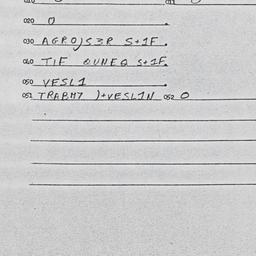 020 0
030 AGRO)S3R S+1F.
040 TIF QUNEQ S+1F.
050 VESL1
051 TRABM7 )+VESL1N 052 0